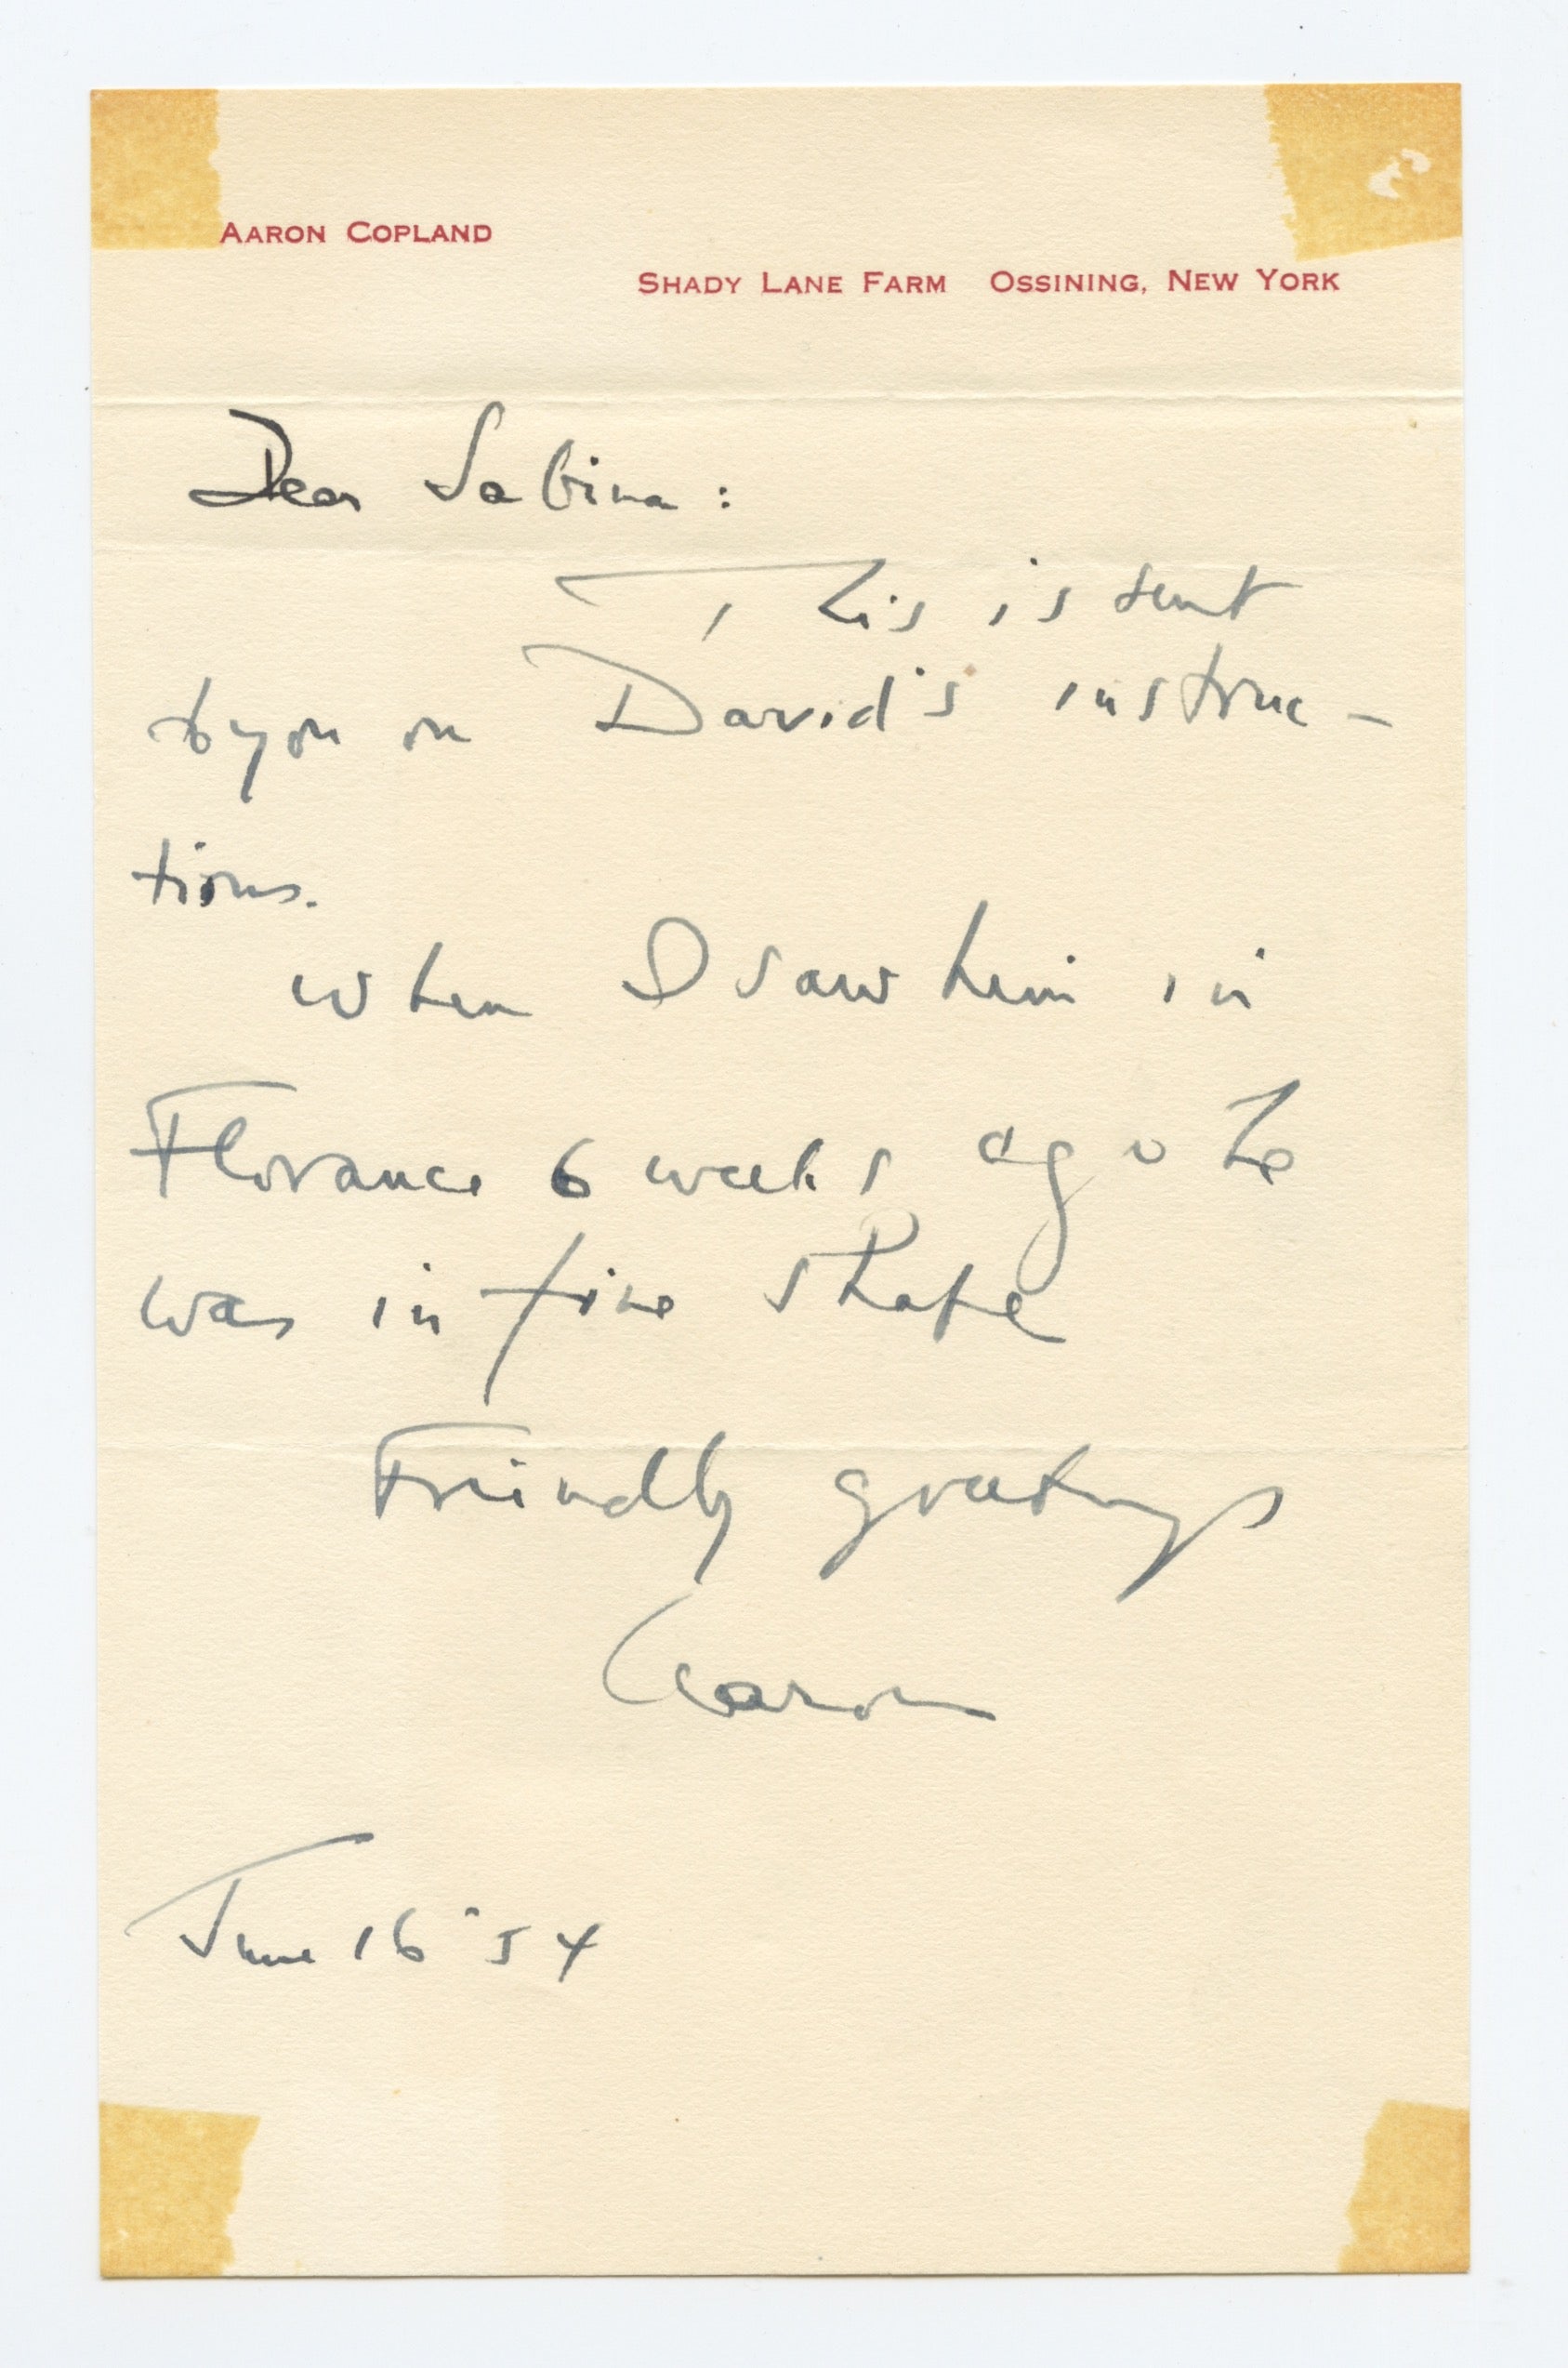 AARON COPLAND
SHADY LANE FARM OSSINING, NEW YORK
Dear Sabina:
This is sent
to you on David's instruc-
tions.
When I saw him in
Florance 6 weeks ago he
was in fine shape
Friendly greetings
Aaron
June 16 '54